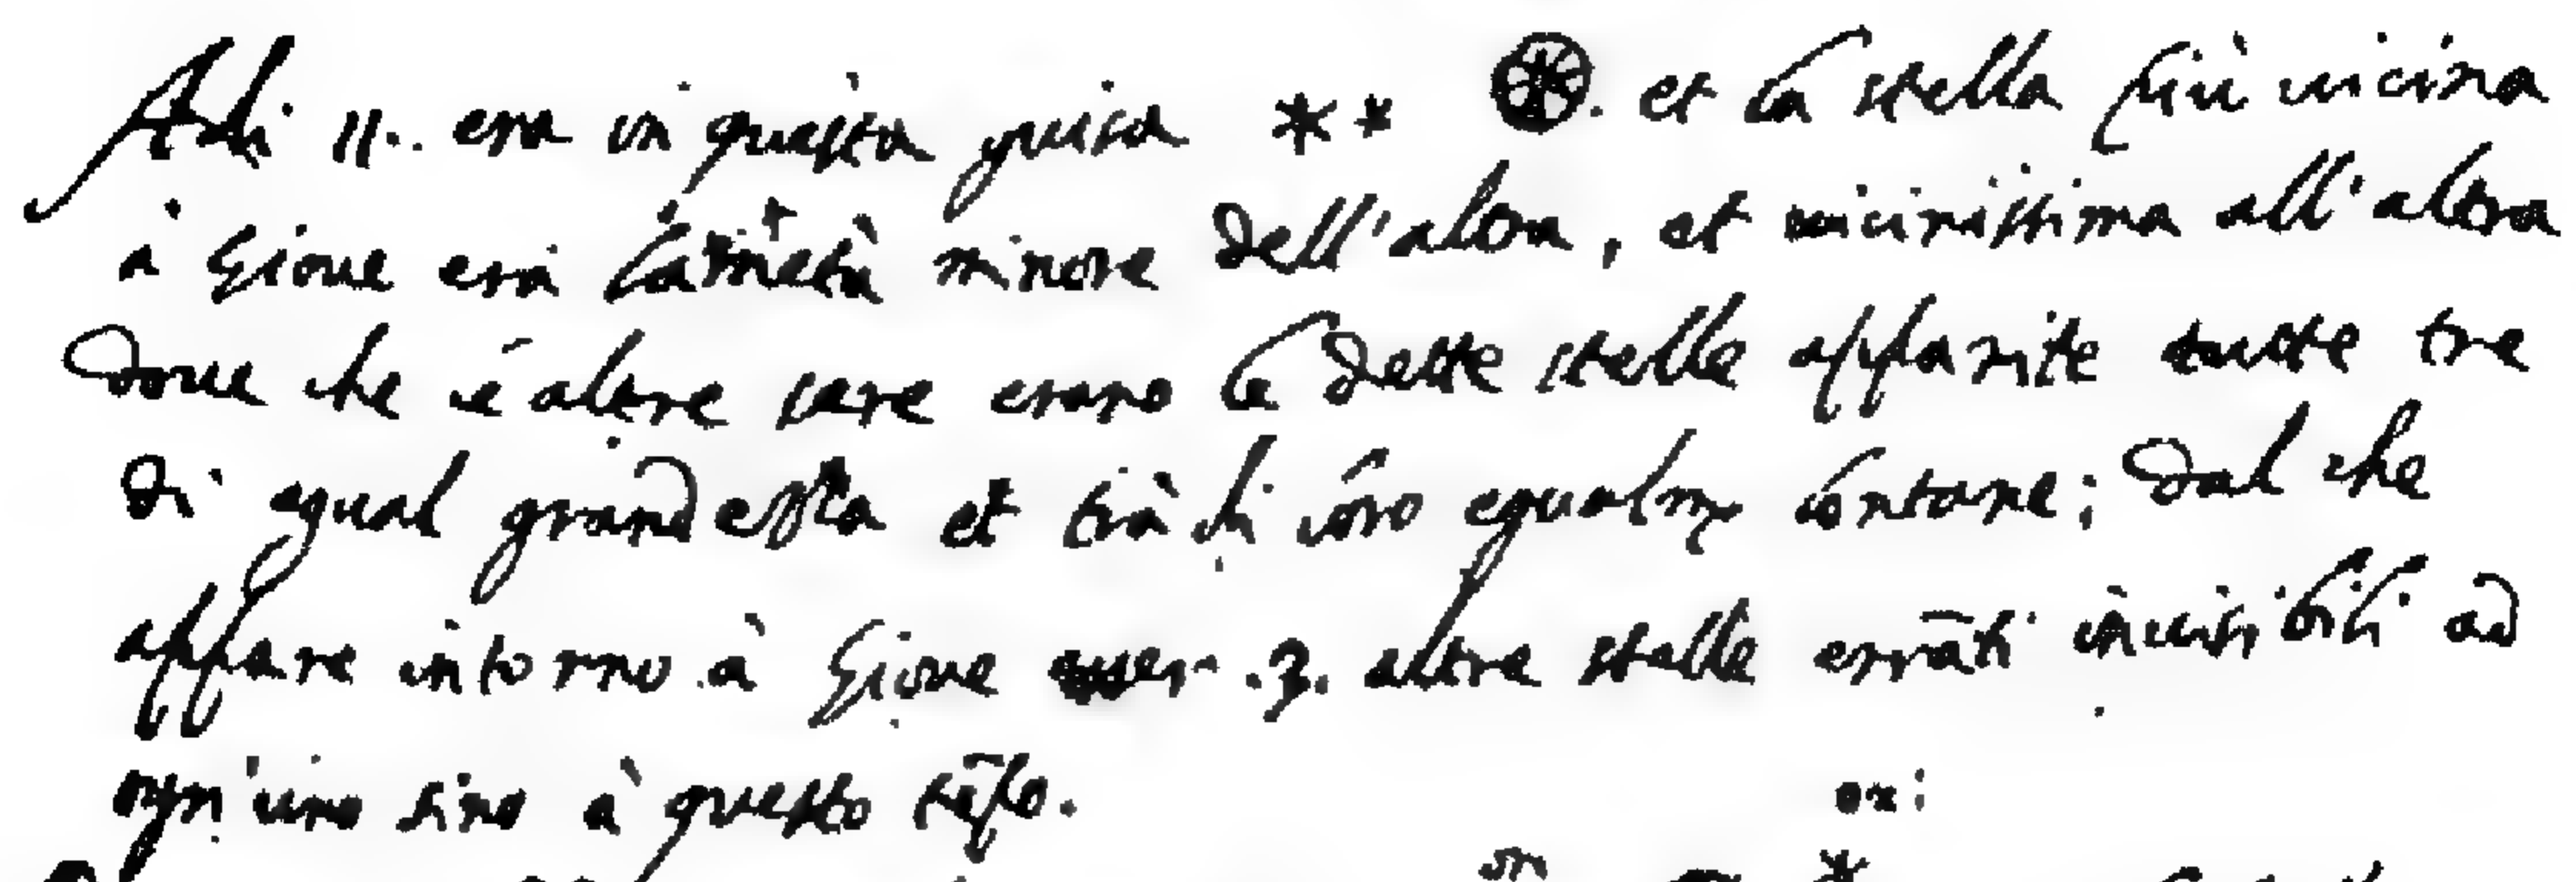 Adi 11. era in questa guisa ** . et la stella più vicina
à Giove era la metà minore dell'altra, et vicinissima all'altra
dove che le altre sere erano le dette stelle apparite tutte tre
di egual grandezza et trà di loro egualm. lontane; dal che
appare intorno à Giove esser .3. altre stelle errāti invisibili ad
ogn'uno sino à questo tēpo.